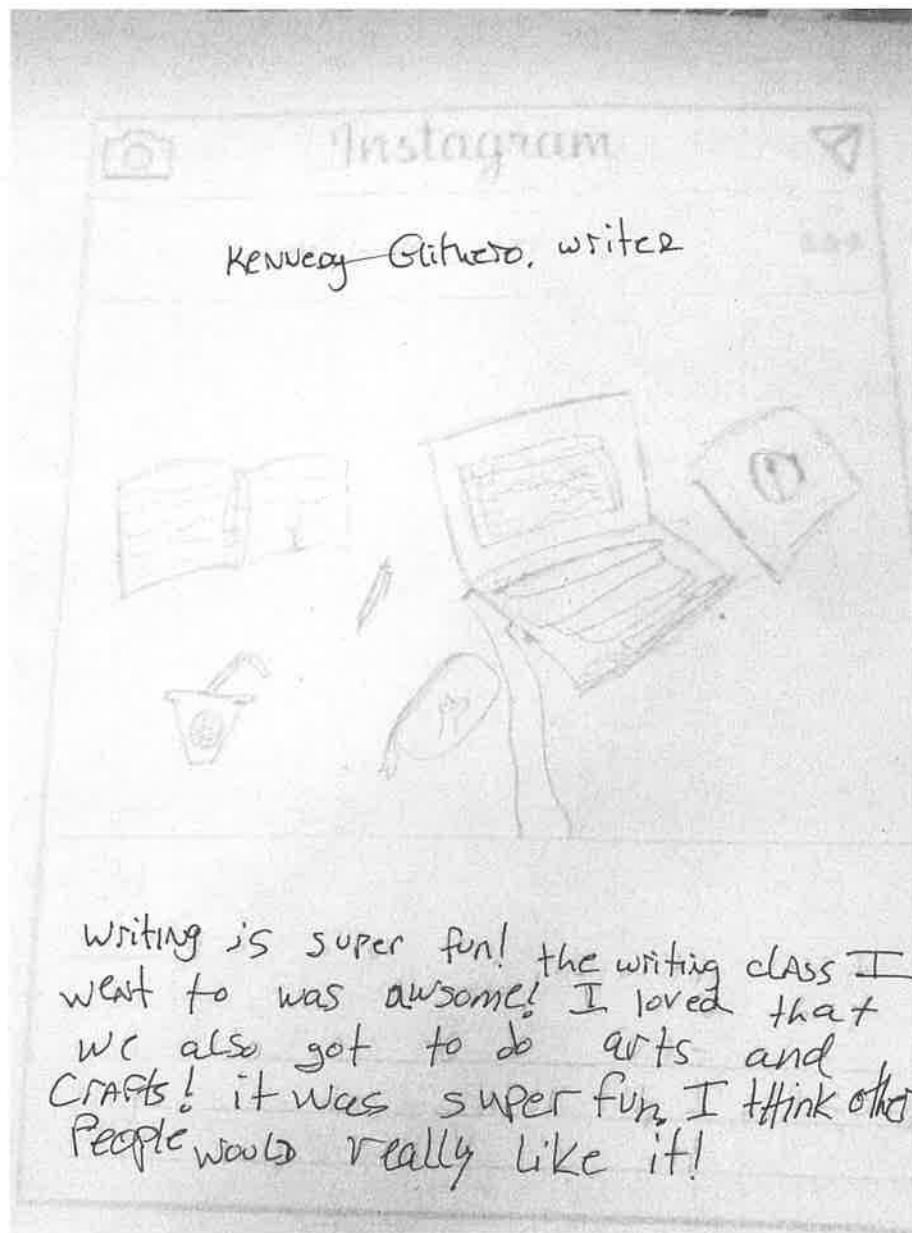 Instagram
Kennedy Glithero, writer
writing is super fun! the writing class I
went to was awsome! I loved that
we also got to do arts and
crafts! it was super fun, I think other
People would really like it!